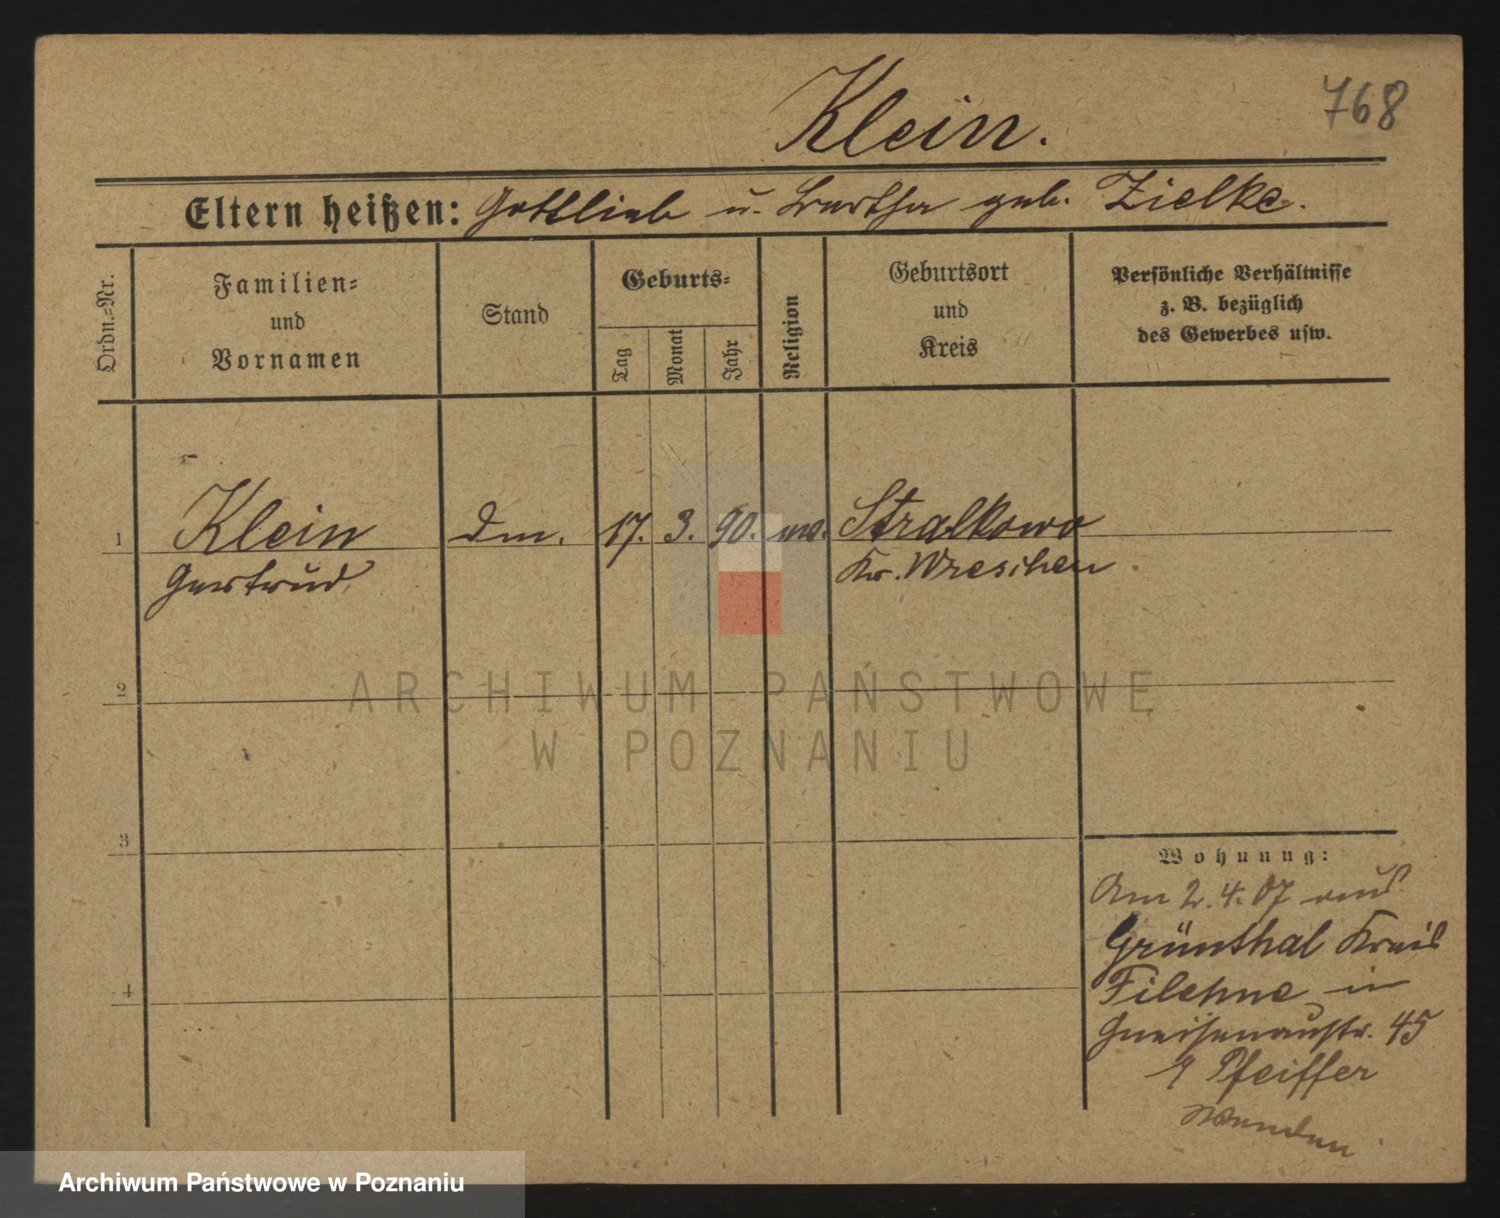 Klein.
768
Eltern heißen: Gottlieb u. Bertha geb. Zielke.
Ordn.-Nr.
Familien-
und
Vornamen
Stand
Geburts-
Tag
Monat
Jahr
Religion
Geburtsort
und
Kreis
Persönliche Verhältnisse
z. B. bezüglich
des Gewerbes usw.
1
Klein
Gertrud
17. 3. 90.
Stralkowo
Kr. Wreschen
2
3
4
Wohnung:
Am 2. 4. 07 aus
Grünthal Kreis
Filehne in
Gneisenaustr. 45
Pfeiffer
Wenden
ARCHIWUM PAŃSTWOWE
W POZNANIU
Archiwum Państwowe w Poznaniu